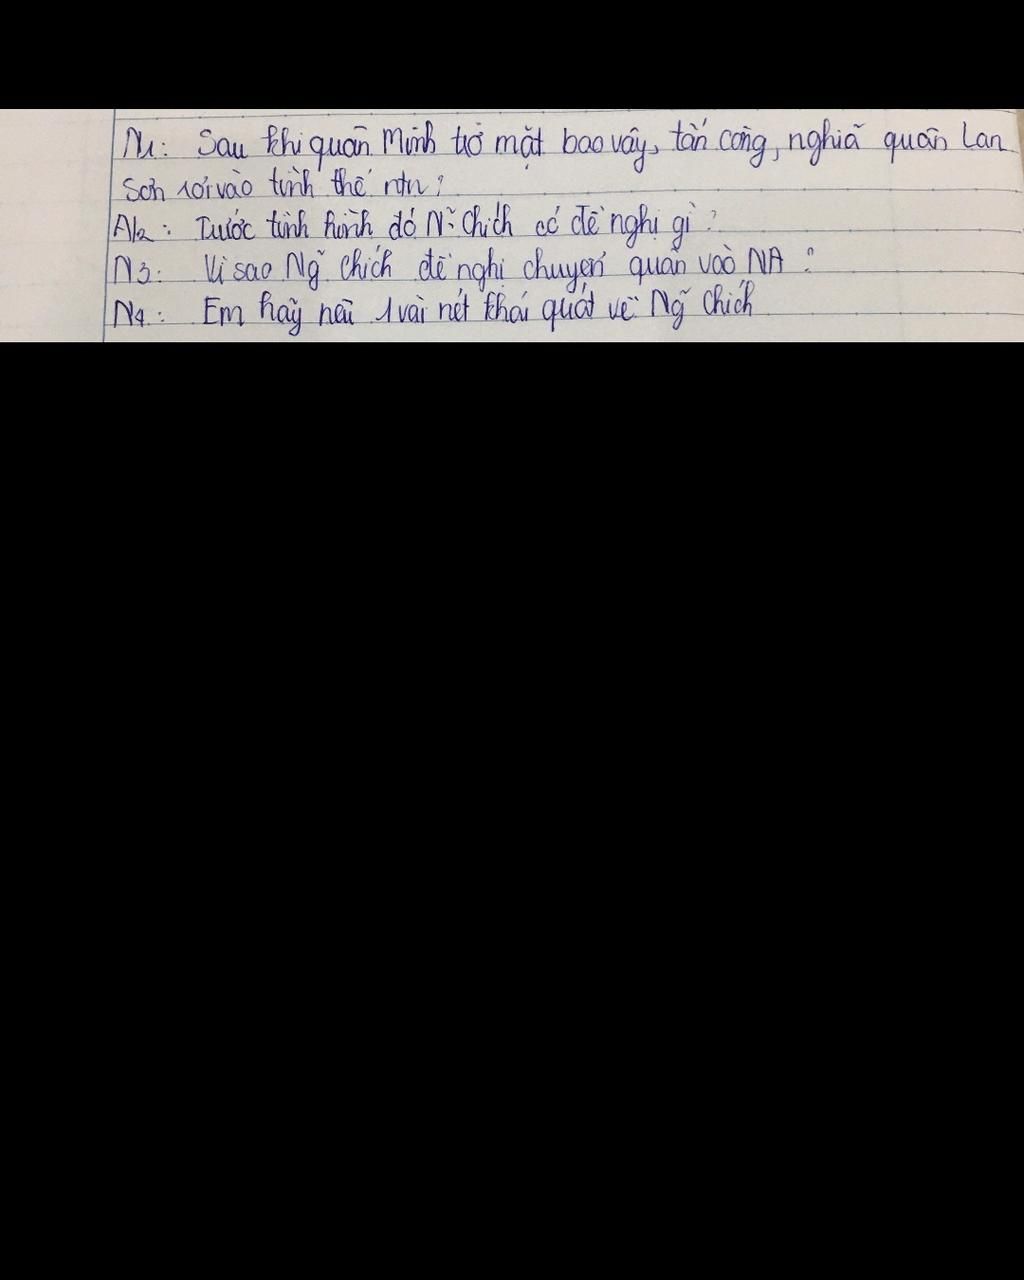 N1: Sau khi quân Minh trở mặt bao vây, tấn công, nghĩa quân Lan
Sơn rơi vào tình thế ntn?
N2: Trước tình hình đó N~ Chích có đề nghị gì?
N3: Vì sao Ng~ Chích đề nghị chuyển quân vào NA?
N4: Em hãy nêu 1 vài nét khái quát về Ng~ Chích